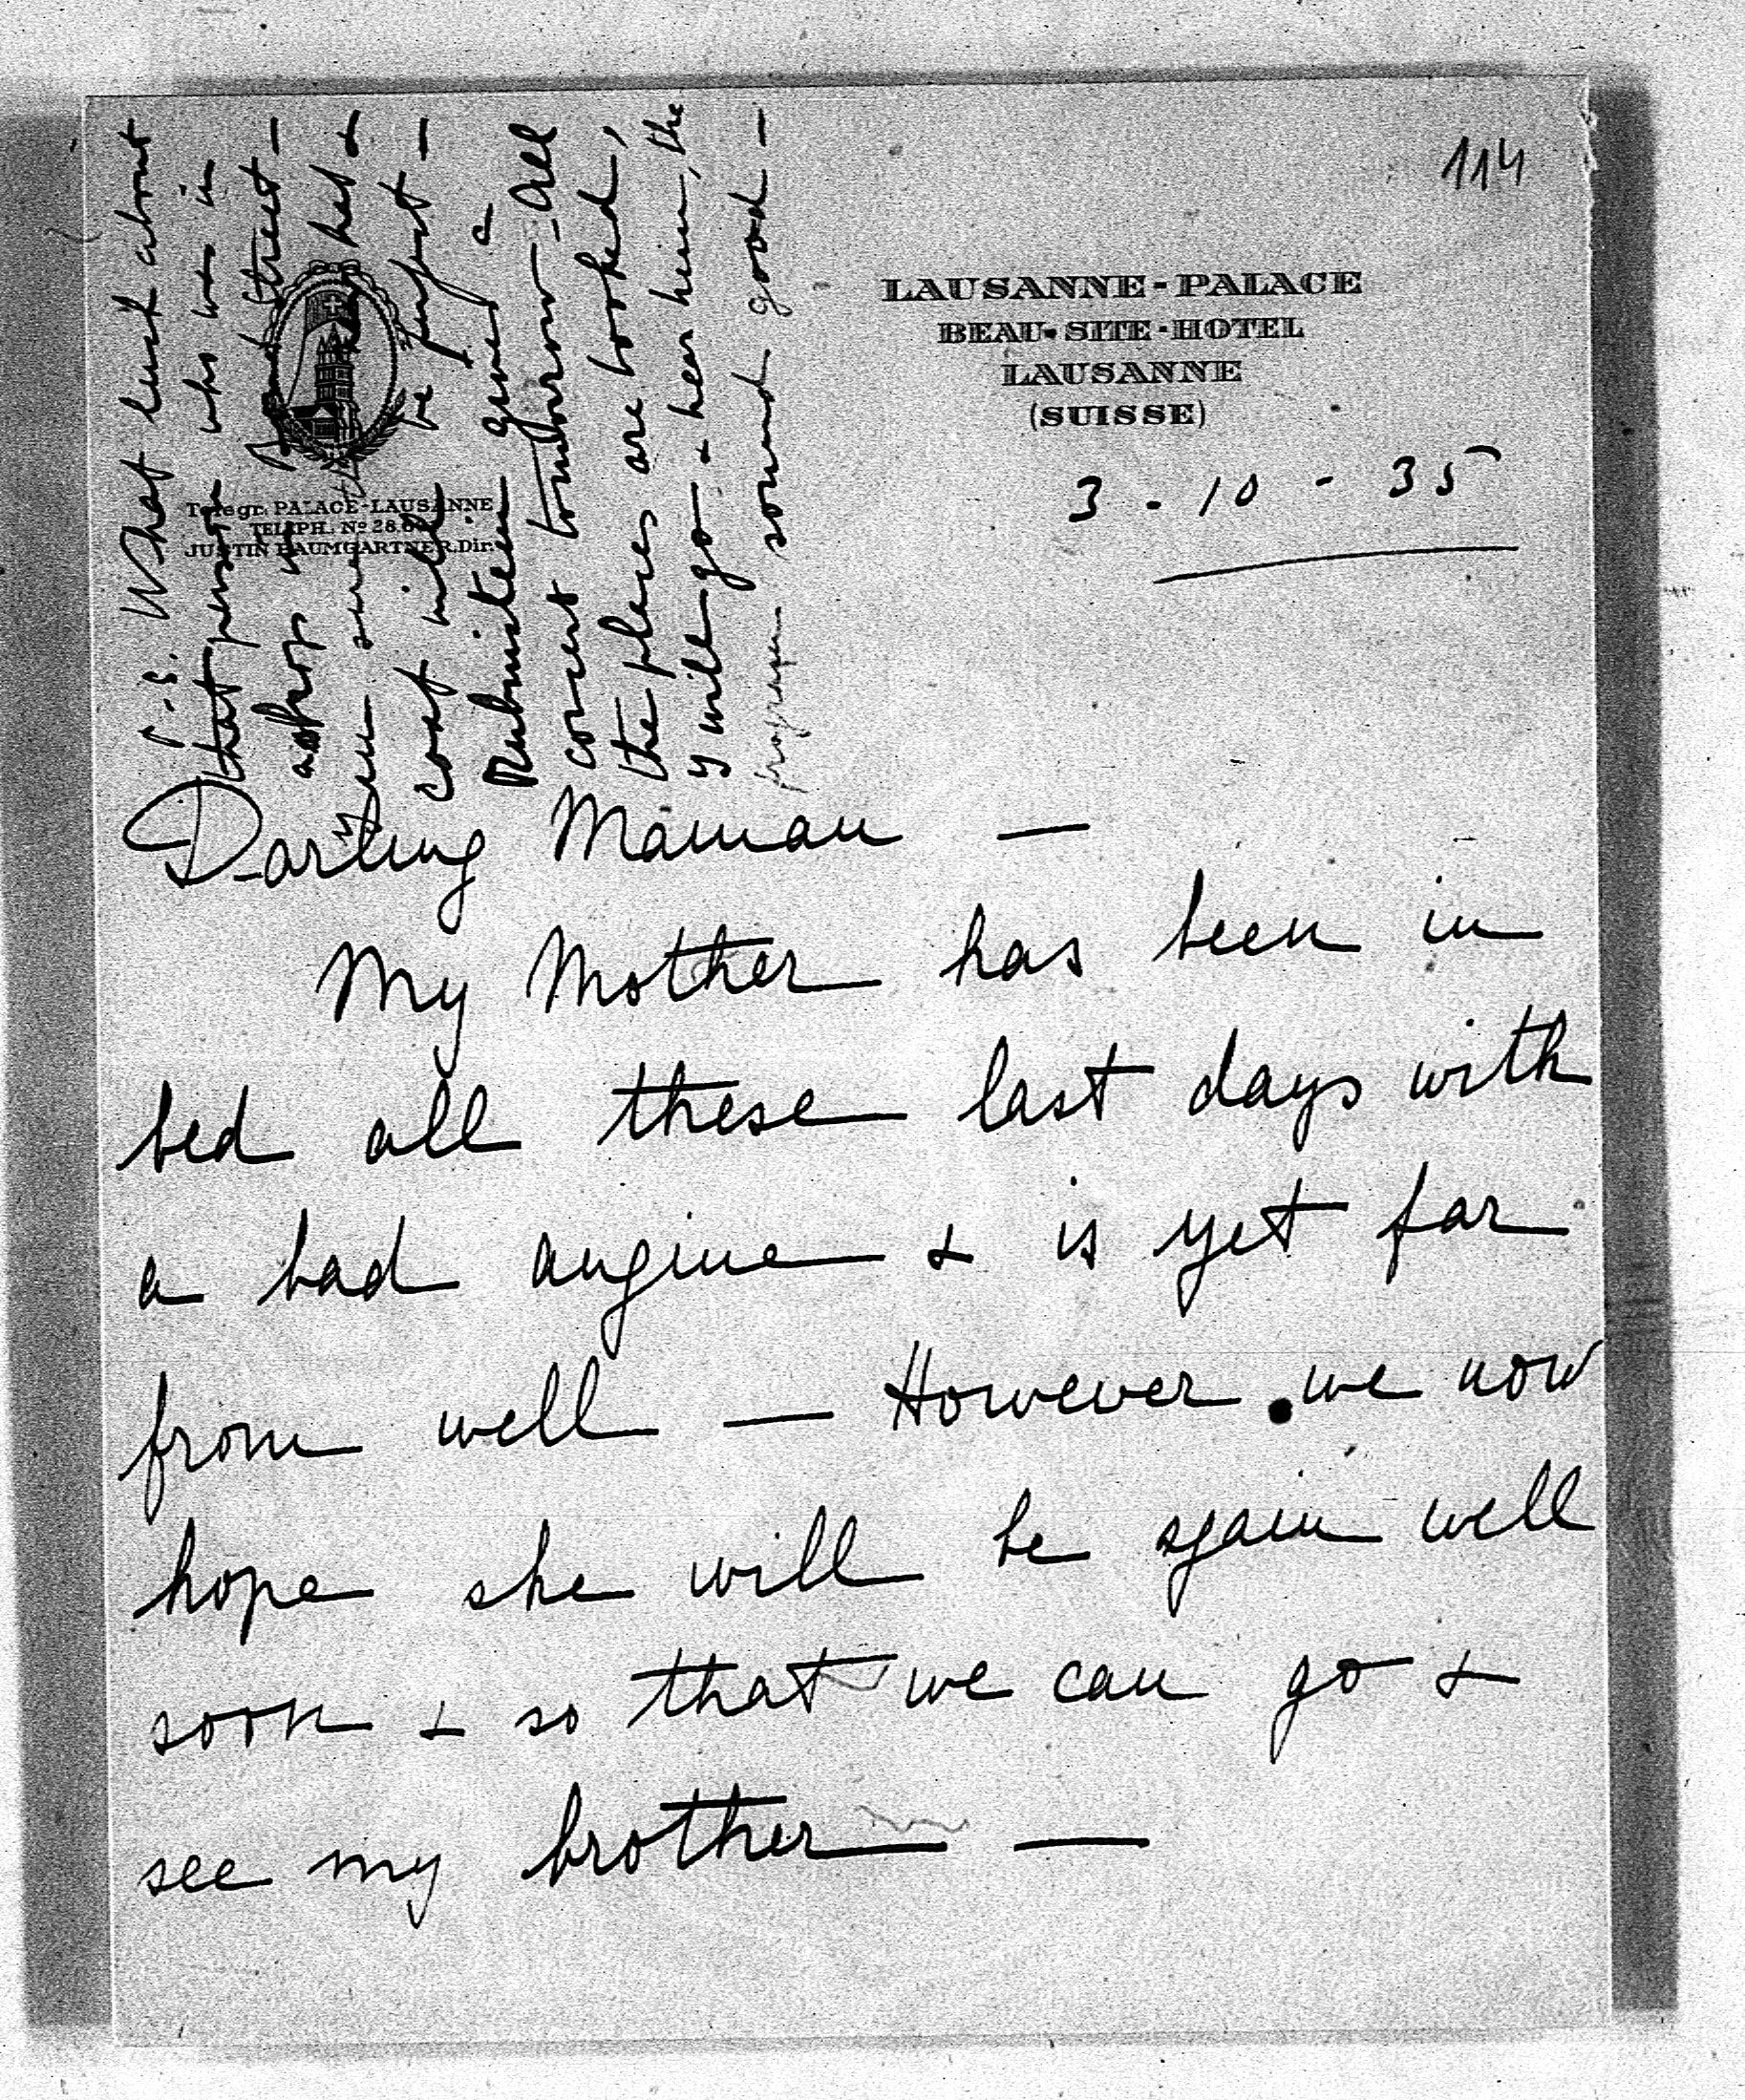 114
LAUSANNE-PALACE
BEAU-SITE-HOTEL
LAUSANNE
(SUISSE)
Telegr. PALACE-LAUSANNE
TELEPH. No 28.
JUSTIN BAUMGARTNER. Dir.
3 - 10 - 35
Darling Maman —
My Mother has been in
bed all these last days with
a bad angine & is yet far
from well — However we now
hope she will be again well
soon & so that we can go &
see my brother —
P.S. What luck about
that person who was in
a shop in Bond Street —
I am sure the hat &
coat will be perfect —
Rubinstein gives a
concert tomorrow — All
the places are booked,
I will go & hear him, the
program sound good —